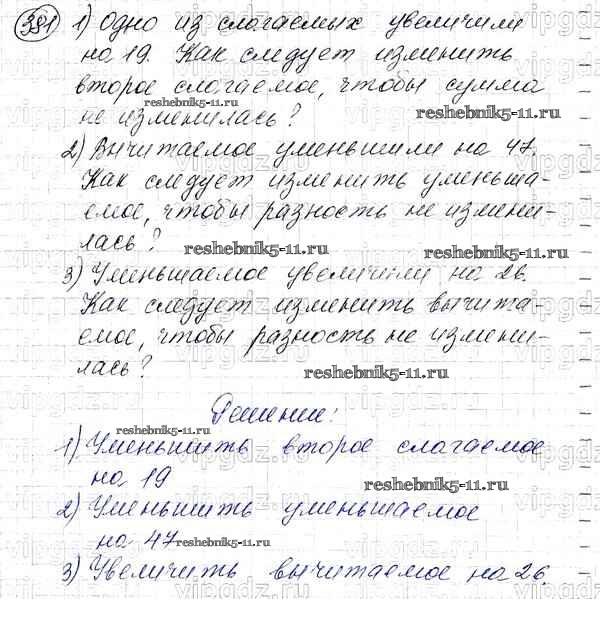 381 1) Одно из слагаемых увеличили
на 19. Как следует изменить
второе слагаемое, чтобы сумма
reshebnik5-11.ru reshebnik5-11.ru
не изменилась?
2) Вычитаемое уменьшили на 47.
Как следует изменить уменьша-
емое, чтобы разность не измени-
лась?
reshebnik5-11.ru reshebnik5-11.ru
3) Уменьшаемое увеличили на 26.
Как следует изменить вычита-
емое, чтобы разность не измени-
лась?
reshebnik5-11.ru
Решение:
reshebnik5-11.ru
1) Уменьшить второе слагаемое
reshebnik5-11.ru
на 19
2) Уменьшить уменьшаемое
на 47 reshebnik5-11.ru
3) Увеличить вычитаемое на 26.
reshebnik5-11.ru